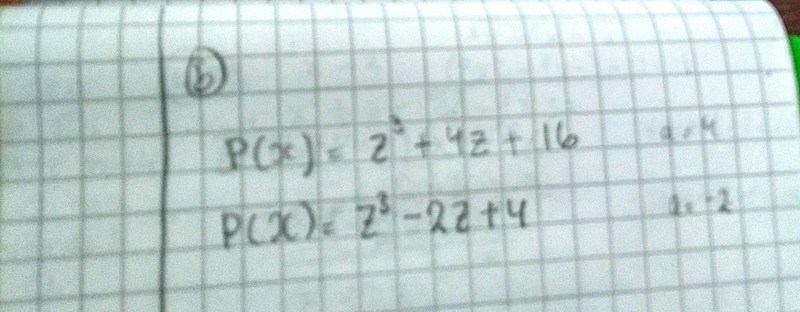 b
P(x) = z³ + 4z + 16 a = 4
P(x) = z³ - 2z + 4 a = -2